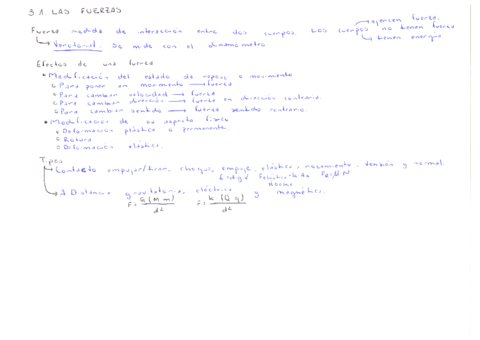 3.1. LAS FUERZAS
ejercen fuerza.
Fuerza medida de interacción entre dos cuerpos. Los cuerpos no tienen fuerza
tienen energía
Vectorial. Se mide con el dinamómetro
Efectos de una fuerza
Modificación del estado de reposo o movimiento
Para poner en movimiento → fuerza
Para cambiar velocidad → fuerza
Para cambiar dirección → fuerza en dirección contraria.
Para cambiar sentido → fuerza sentido contrario
Modificación de su aspecto físico
Deformación plástica o permanente
Rotura
Deformación elástica.
Tipos
Contacto empujar/tirar, choque, empuje, elástica, rozamiento, tensión y normal.
A Distancia gravitatoria, eléctrica y magnética.
F = G(M m) / d² F = k (Q q) / d²